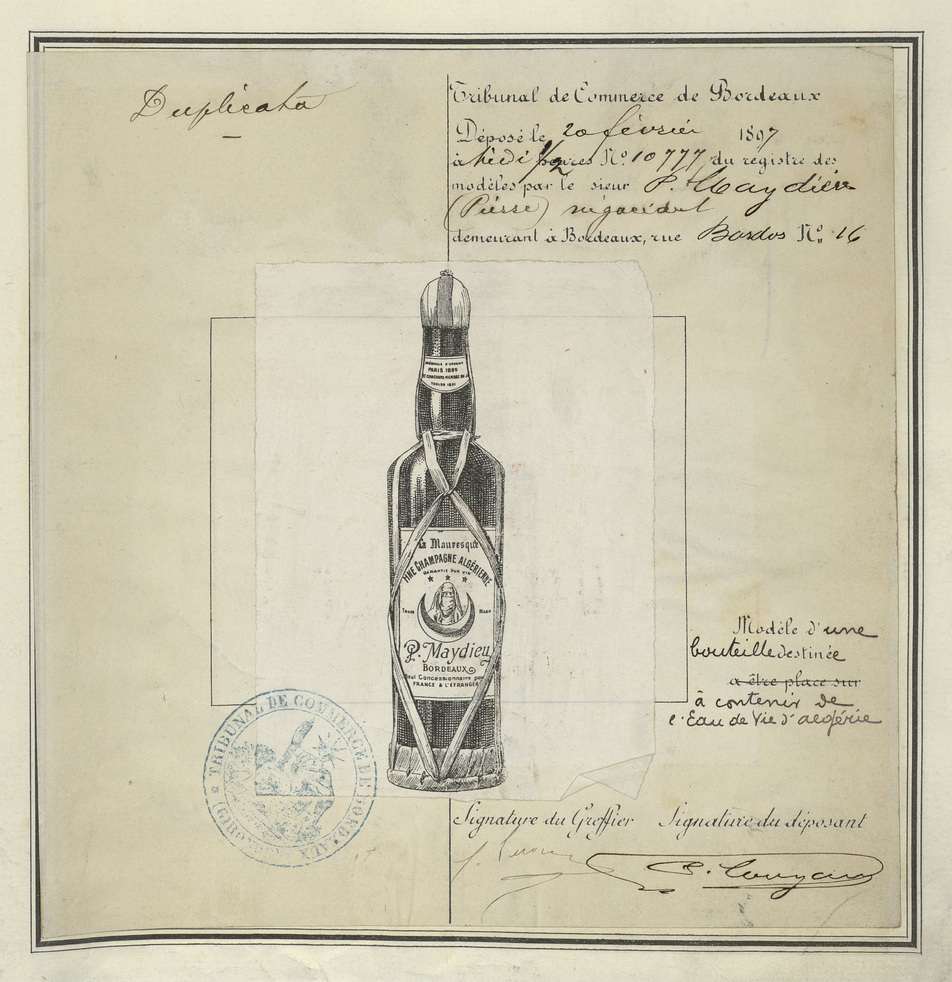 Duplicata
Tribunal de Commerce de Bordeaux
Déposé le 20 février 1897
à Midi 1/2 heures Nº 10777 du registre des
modèles par le sieur P. Maydieu
(Pierre) négociant
demeurant à Bordeaux, rue Bardos Nº 16
PARIS 1889
La Mauresque
FINE CHAMPAGNE ALGÉRIENNE
GARANTIE PUR VIN
TRADE MARK
P. Maydieu
BORDEAUX
Seul Concessionnaire pour
FRANCE & L'ETRANGER
Modèle d'une
bouteille destinée
a être place sur
à contenir de
l'Eau de Vie d'algérie
TRIBUNAL DE COMMERCE DE BORDEAUX (GIRONDE)
Signature du Greffier Signature du déposant